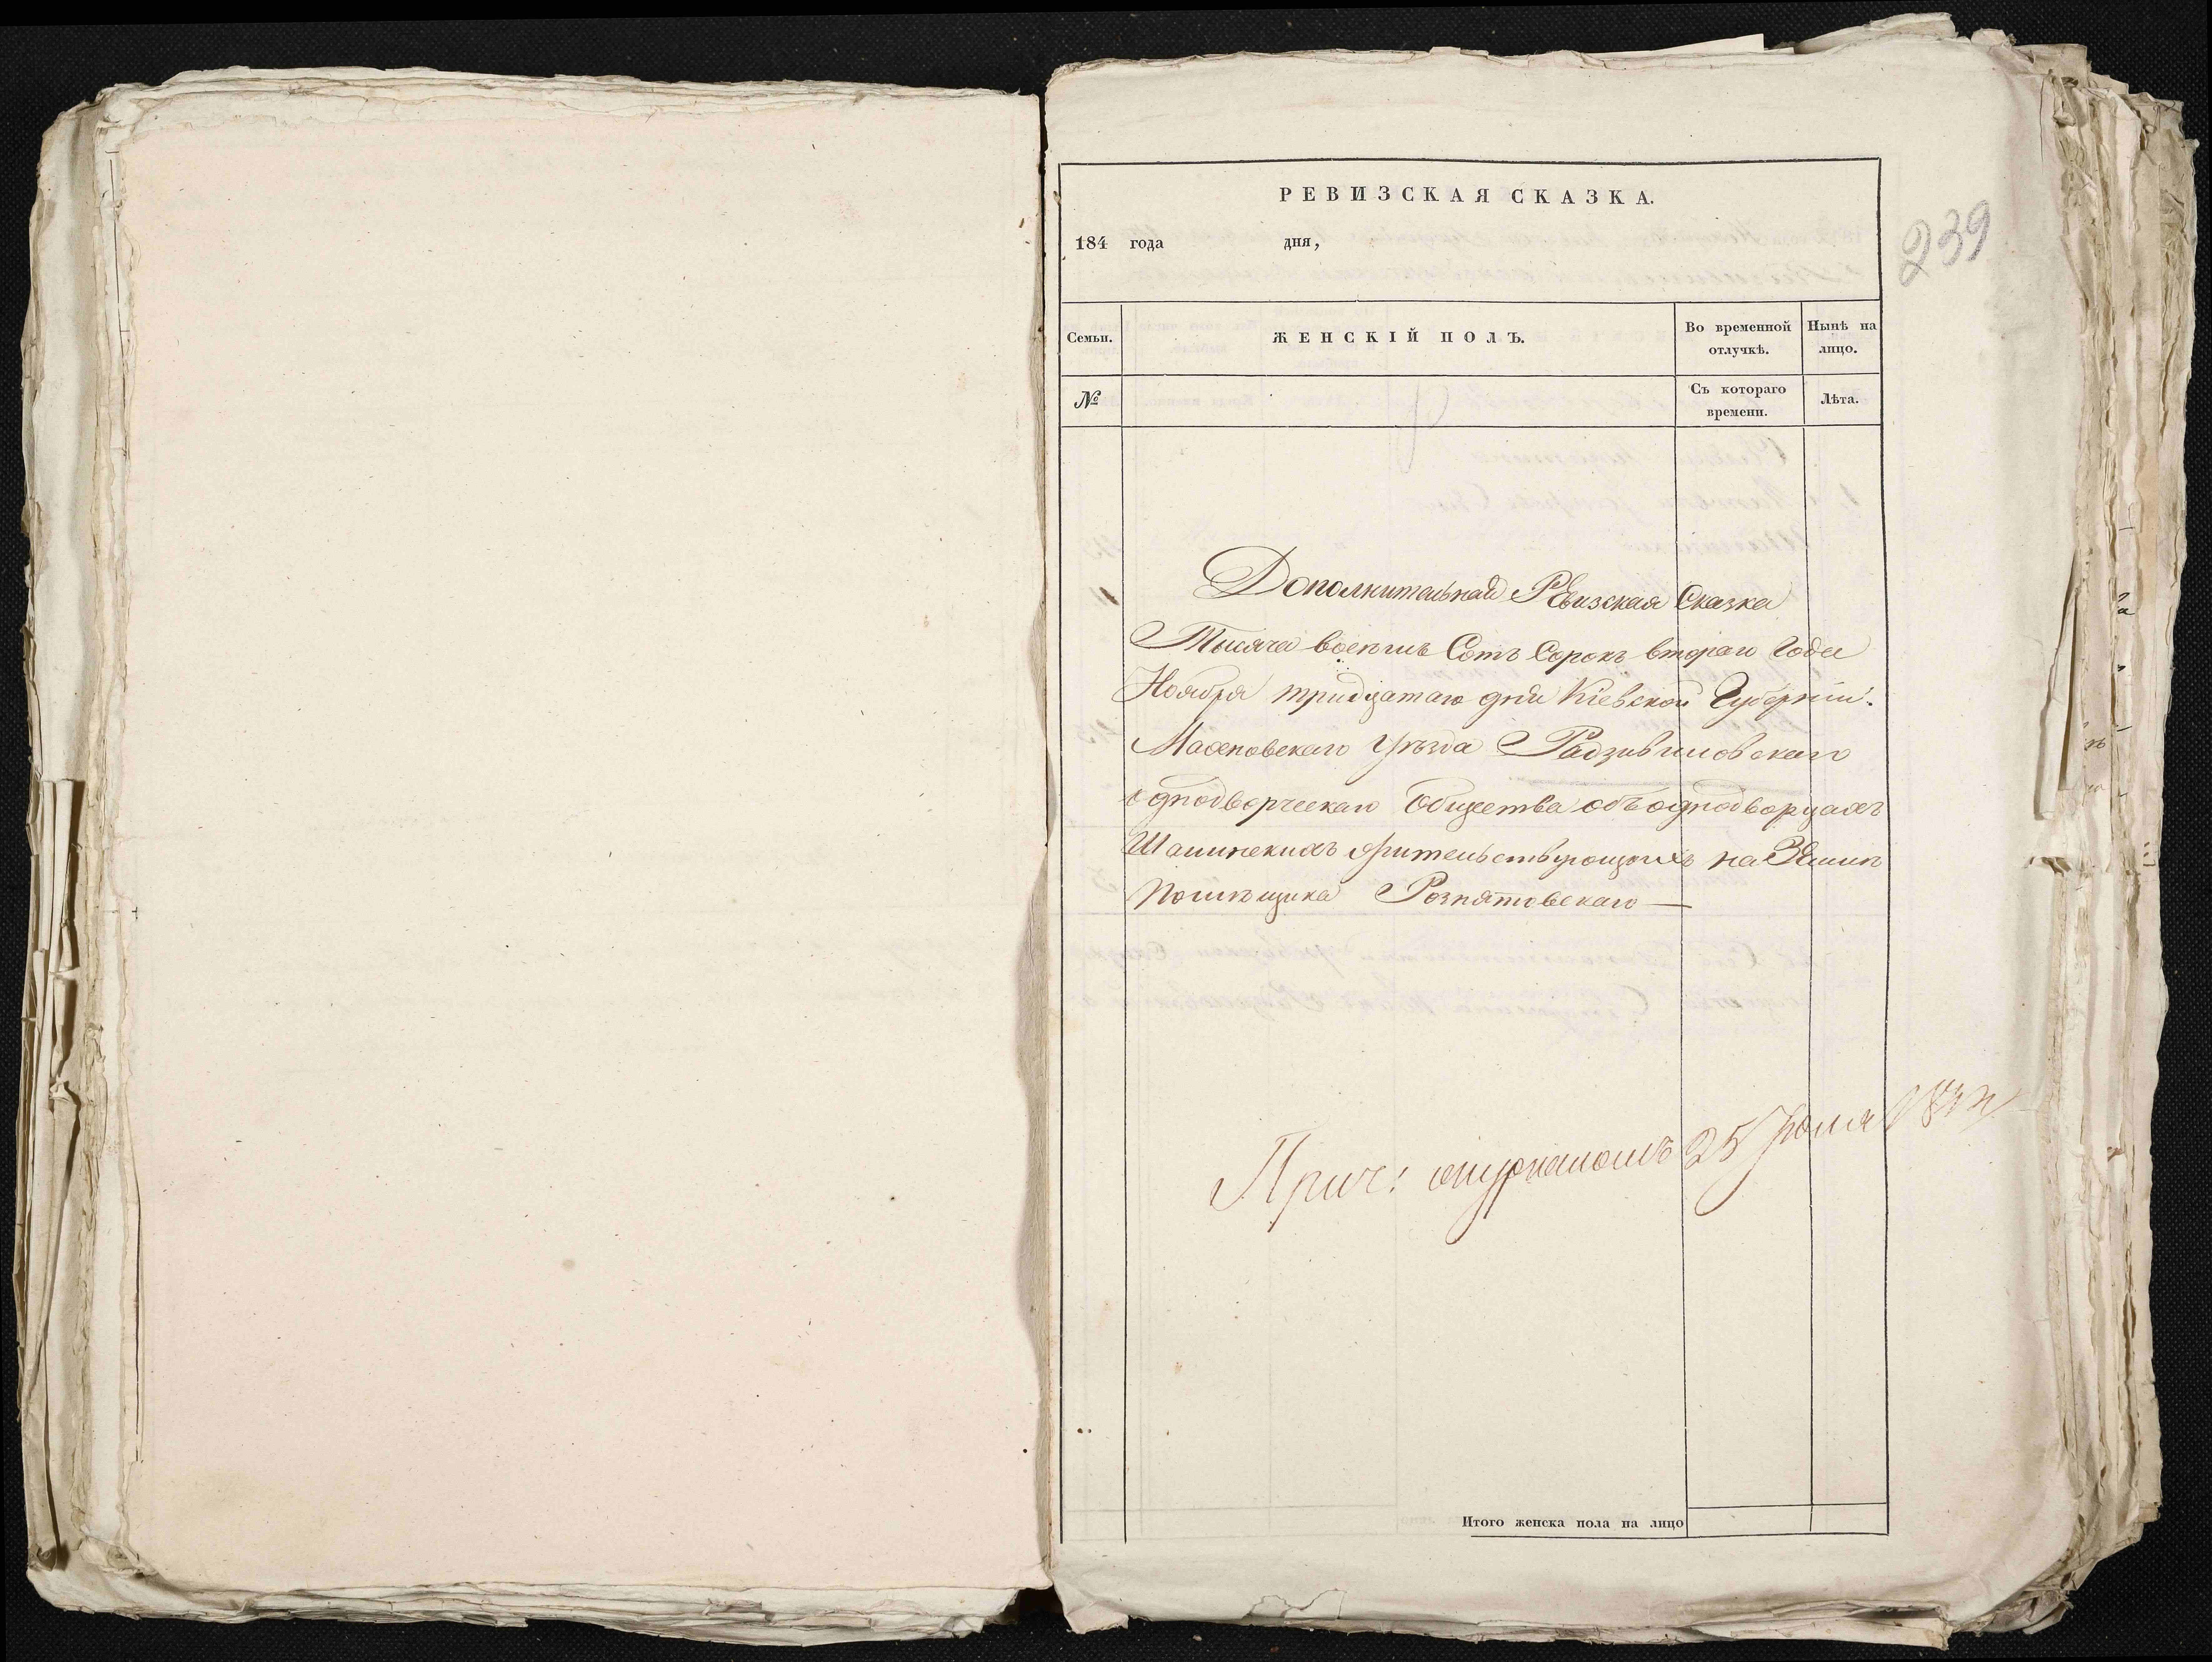 239
РЕВИЗСКАЯ СКАЗКА.
184 года дня,
Семьи. ЖЕНСКІЙ ПОЛЪ. Во временной отлучкѣ. Нынѣ на лицо.
№ Съ котораго времени. Лѣта.
Дополнительная Ревизская Сказка
Тысяча восемь Сотъ Сорокъ втораго Года
Ноября тридцатаго дня Кіевской Губерніи
уѣзда Радзивиловскаго
однодворческаго Общества объ однодворцахъ
жительствующихъ на Земли
Помѣщика Рознятовскаго
25
Итого женска пола на лицо